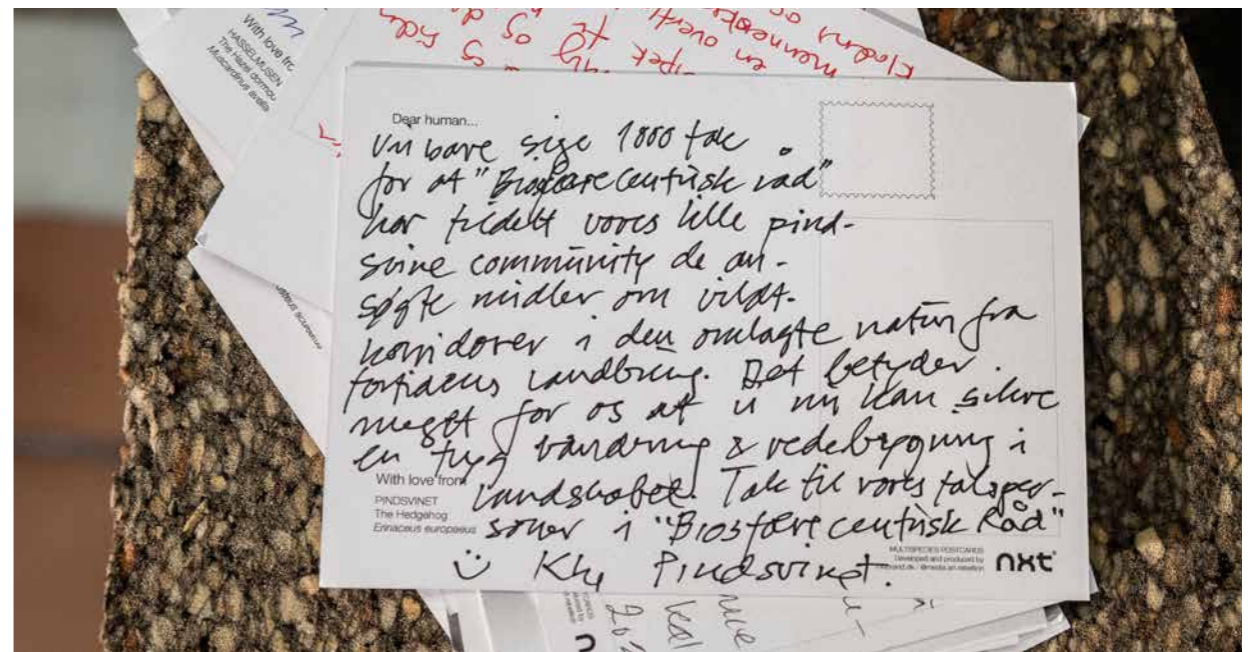 kloden
mennesker
en overfl
With love fro
HASSELMUSEN
The Hazel dormou
Muscardinus avella
Dear human...
Vil bare sige 1000 tak
for at "Biosfærecentrisk råd"
har tildelt vores lille pind-
svine community de an-
søgte midler om vildt-
korridorer i den omlagte natur fra
fortidens landbrug. Det betyder
meget for os at vi nu kan sikre
en tryg vandring & redebygning i
landskabet. Tak til vores talsper-
soner i "Biosfærecentrisk Råd"
:) Kh Pindsvinet.
With love from
PINDSVINET
The Hedgehog
Erinaceus europaeus
MULTISPECIES POSTCARDS
Developed and produced by
nxt